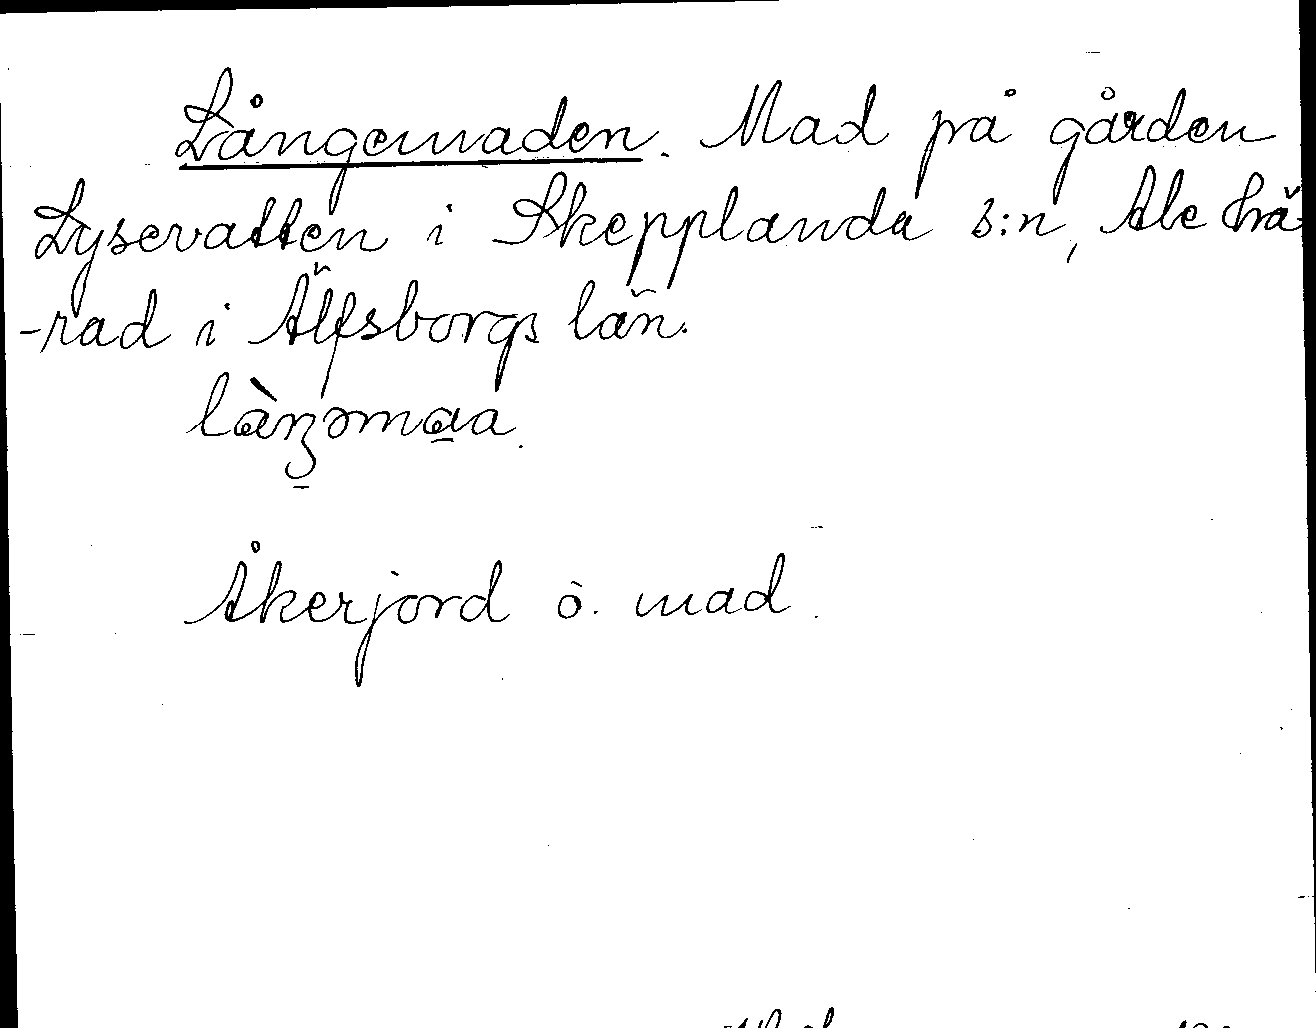 Långemaden. Mad på gården
Lysevatten i Skepplanda s:n, Ale hä-
-rad i Älfsborgs län.
Åkerjord o. mad.